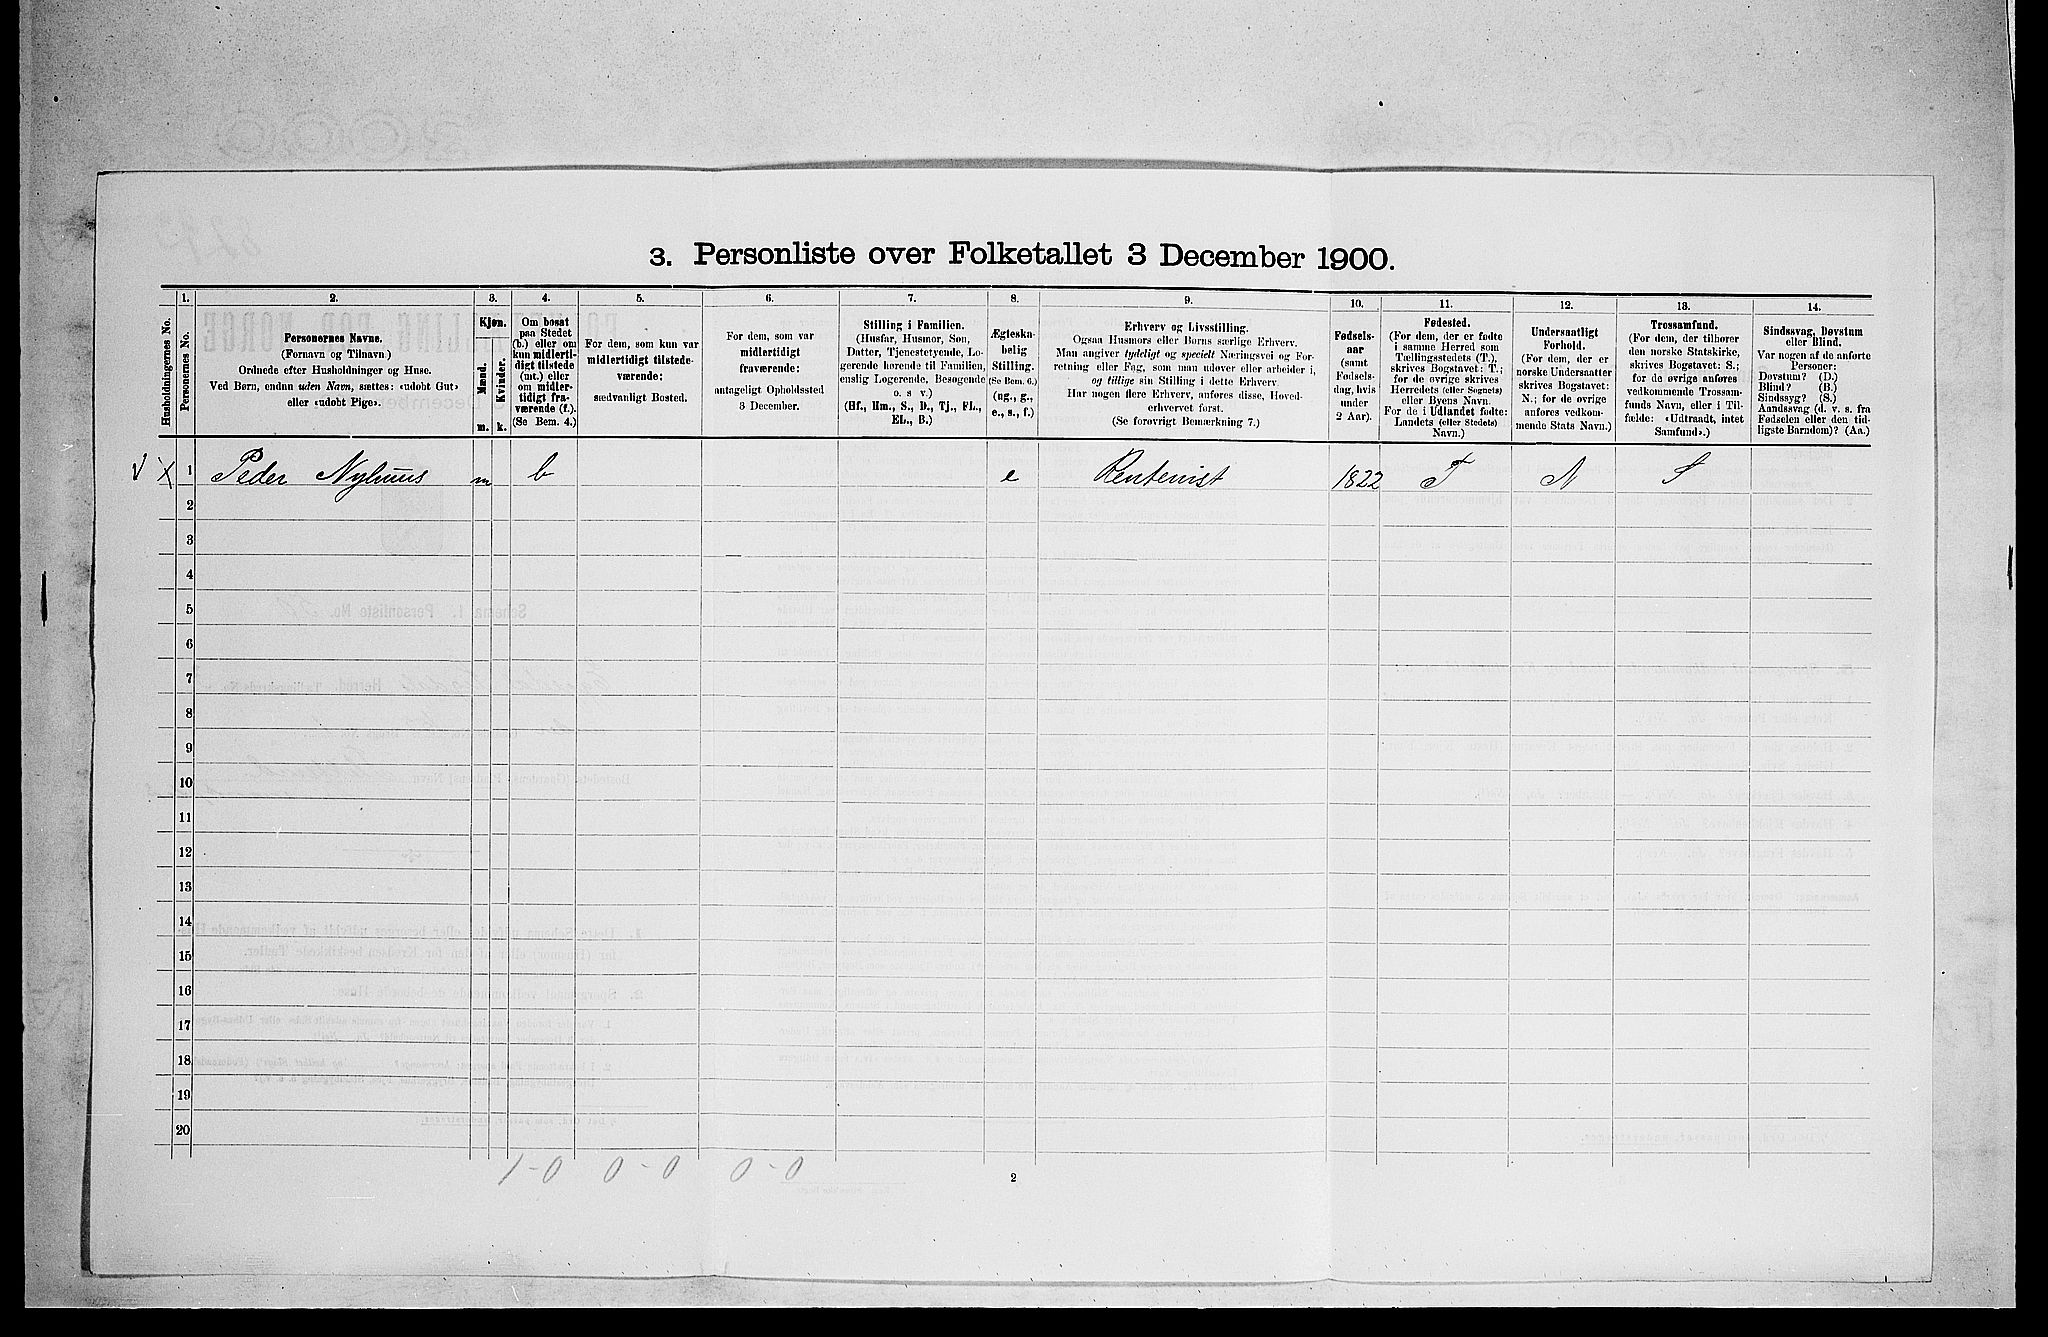 3. Personliste over Folketallet 3 December 1900.
Husholdningernes No.
1.
Personernes No.
2.
Personernes Navne.
(Fornavn og Tilnavn)
Ordnede efter Husholdninger og Huse.
Ved Børn, endnu uden Navn, sættes: «udøbt Gut»
eller «udøbt Pige».
3.
Kjøn.
Mænd.
Kvinder.
m. k.
4.
Om bosat
paa Stedet
(b.) eller om
kun midlerti-
digt tilstede
(mt.) eller
om midler-
tidigt fra-
værende (f.).
(Se Bem. 4.)
5.
For dem, som kun var
midlertidigt tilstede-
værende:
sædvanligt Bosted.
6.
For dem, som var
midlertidigt
fraværende:
antageligt Opholdssted
3 December.
7.
Stilling i Familien.
(Husfar, Husmor, Søn,
Datter, Tjenestetyende, Lo-
gerende hørende til Familien,
enslig Logerende, Besøgende
o. s v.)
(Hf., Hm., S., D., Tj., FL.,
EL., B.)
8.
Ægteska-
belig
Stilling.
(Se Bem. 6.)
(ug., g.,
e., s., f.)
9.
Erhverv og Livsstilling.
Ogsaa Husmors eller Børns særlige Erhverv.
Man angiver tydeligt og specielt Næringsvei og For-
retning eller Fag, som man udøver eller arbeider i,
og tillige sin Stilling i dette Erhverv.
Har nogen flere Erhverv, anføres disse, Hoved-
erhvervet først.
(Se forøvrigt Bemærkning 7.)
10.
Fødsels-
aar
(samt
Fødsels-
dag, hvis
under
2 Aar).
11.
Fødested.
(For dem, der er fødte
i samme Herred som
Tællingsstedets (T.),
skrives Bogstavet: T.;
for de øvrige skrives
Herredets (eller Sognets)
eller Byens Navn.
For de i Udlandet fødte:
Landets (eller Stedets)
Navn.)
12.
Undersaatligt
Forhold.
(For dem, der er
norske Undersaatter
skrives Bogstavet:
N.; for de øvrige
anføres vedkom-
mende Stats Navn.)
13.
Trossamfund.
(For dem, der tilhører
den norske Statskirke,
skrives Bogstavet: S.;
for de øvrige anføres
vedkommende Trossam-
funds Navn, eller i Til-
fælde: «Udtraadt, intet
Samfund».)
14.
Sindssvag, Døvstum
eller Blind.
Var nogen af de anførte
Personer:
Døvstum? (D.)
Blind? (B.)
Sindssyg? (S.)
Aandssvag (d. v. s. fra
Fødselen eller den tid-
ligste Barndom)? (Aa.)
√ X 1 Peder Nyhuus m b e Rentenist 1822 T N S
2
3
4
5
6
7
8
9
10
11
12
13
14
15
16
17
18
19
20
1-0 0-0 0-0
2